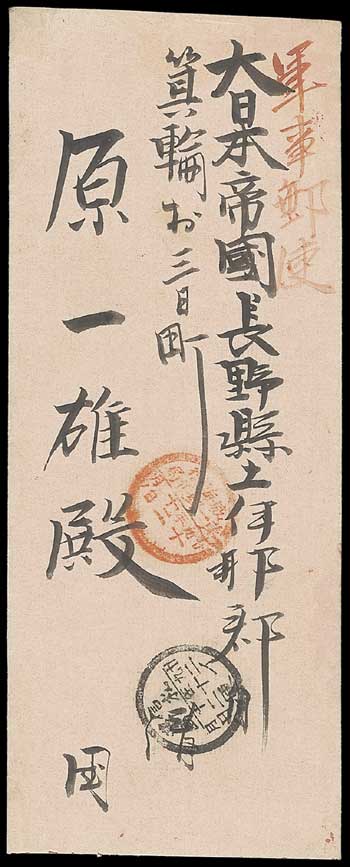 軍事郵便
大日本帝國長野縣上伊那郡
箕輪村三日町
原一雄殿